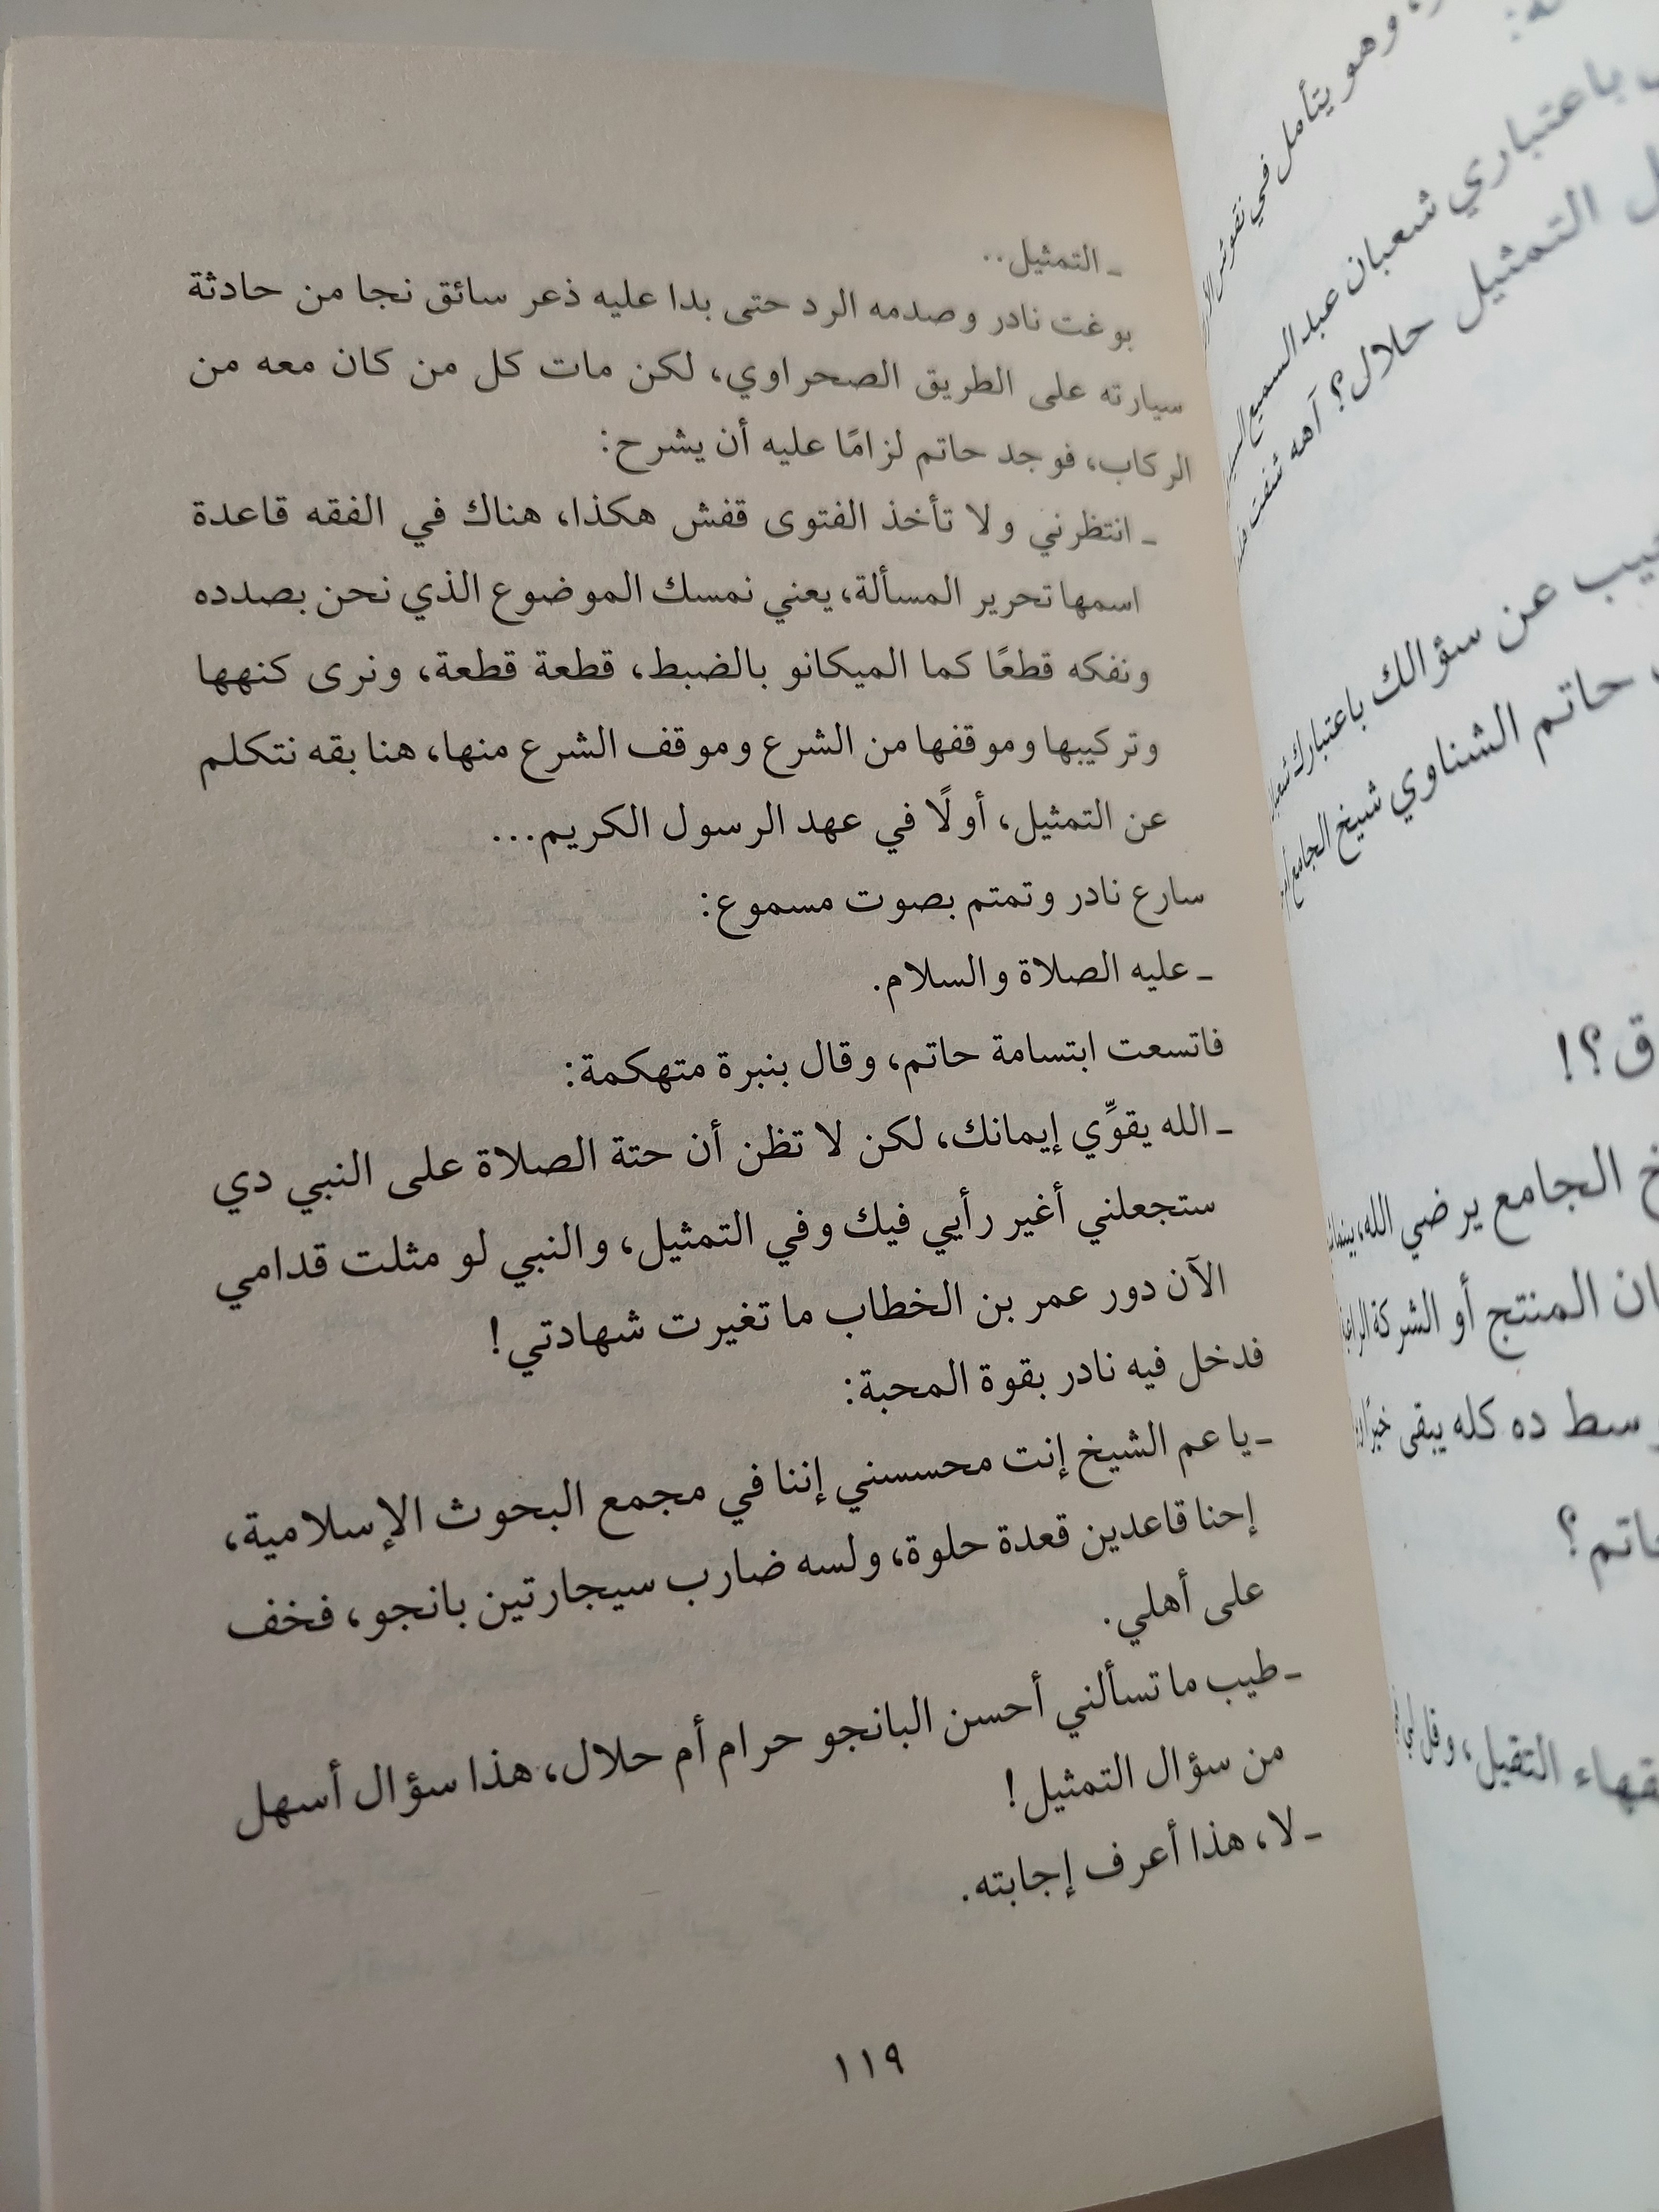 ـ التمثيل..
بوغت نادر وصدمه الرد حتى بدا عليه ذعر سائق نجا من حادثة
سيارته على الطريق الصحراوي، لكن مات كل من كان معه من
الركاب، فوجد حاتم لزامًا عليه أن يشرح:
ـ انتظرني ولا تأخذ الفتوى قفش هكذا، هناك في الفقه قاعدة
اسمها تحرير المسألة، يعني نمسك الموضوع الذي نحن بصدده
ونفكه قطعًا كما الميكانو بالضبط، قطعة قطعة، ونرى كنهها
وتركيبها وموقفها من الشرع وموقف الشرع منها، هنا بقه نتكلم
عن التمثيل، أولًا في عهد الرسول الكريم...
سارع نادر وتمتم بصوت مسموع:
ـ عليه الصلاة والسلام.
فاتسعت ابتسامة حاتم، وقال بنبرة متهكمة:
ـ الله يقوِّي إيمانك، لكن لا تظن أن حتة الصلاة على النبي دي
ستجعلني أغير رأيي فيك وفي التمثيل، والنبي لو مثلت قدامي
الآن دور عمر بن الخطاب ما تغيرت شهادتي!
فدخل فيه نادر بقوة المحبة:
ـ يا عم الشيخ إنت محسسني إننا في مجمع البحوث الإسلامية،
إحنا قاعدين قعدة حلوة، ولسه ضارب سيجارتين بانجو، فخف
على أهلي.
ـ طيب ما تسألني أحسن البانجو حرام أم حلال، هذا سؤال أسهل
من سؤال التمثيل!
ـ لا، هذا أعرف إجابته.
١١٩
وهو يتأمل في نقوش
باعتباري شعبان عبد السميع
التمثيل حلال؟ آهه شفت
عن سؤالك باعتبارك
حاتم الشناوي شيخ الجامع
الجامع يرضي الله،
المنتج أو الشركة
وسط ده كله يبقى
التقيل، وقل لي